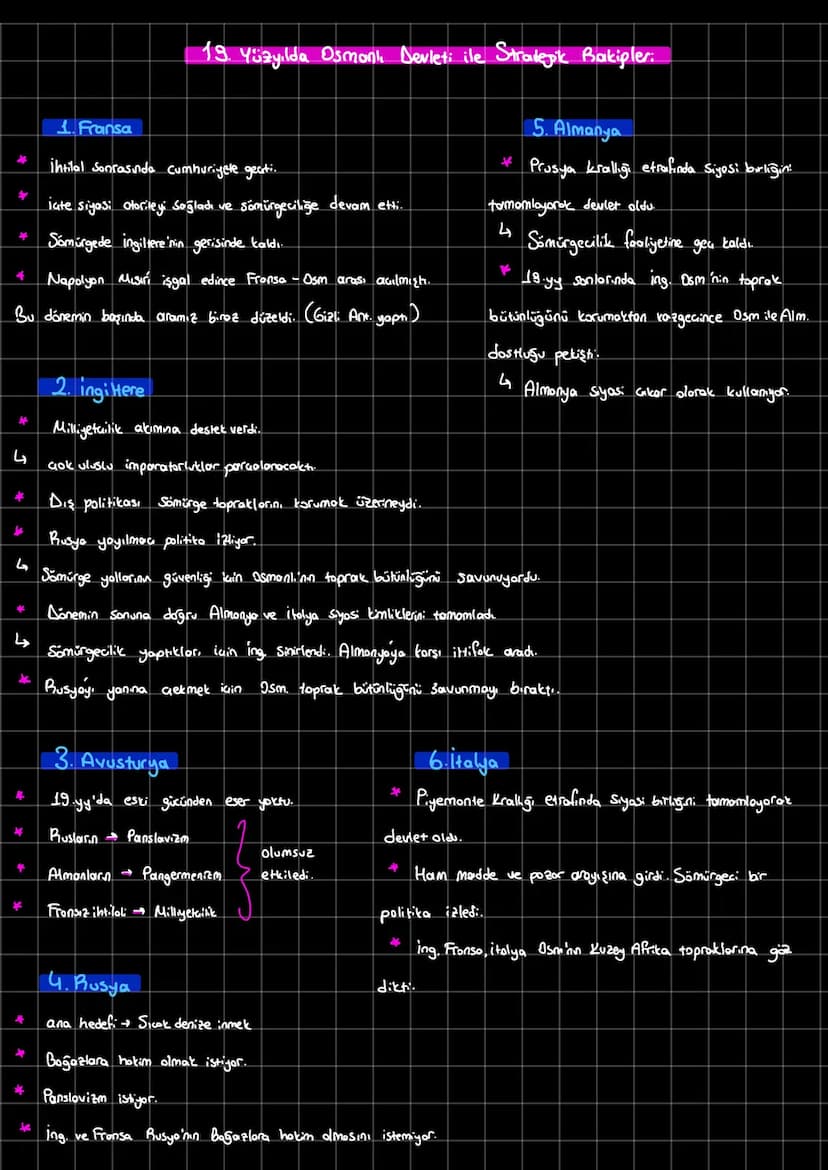 19. Yüzyılda Osmanlı Devleti ile Stratejik Rakipleri
1. Fransa
* İhtilal sonrasında cumhuriyete geçti.
* içte siyasi otoriteyi sağladı ve sömürgeciliğe devam etti.
* Sömürgede ingiltere'nin gerisinde kaldı.
* Napolyon Mısır'ı işgal edince Fransa - Osm arası açılmıştı.
Bu dönemin başında aramız biraz düzeldi. (Gizli Ant. yaptı)
2. ingiltere
* Milliyetçilik akımına destek verdi.
↳ çok uluslu imparatorluklar parçalanacaktı.
* Dış politikası sömürge topraklarını korumak üzerineydi.
* Rusya yayılmacı politika izliyor.
↳ Sömürge yollarının güvenliği için Osmanlı'nın toprak bütünlüğünü savunuyordu.
* Dönemin sonuna doğru Almanya ve italya siyasi kimliklerini tamamladı
↳ Sömürgecilik yaptıkları için ing. sinirlendi. Almanya'ya karşı ittifak aradı.
* Rusya'yı yanına çekmek için Osm. toprak bütünlüğünü savunmayı bıraktı.
3. Avusturya
* 19.yy'da eski gücünden eser yoktu.
* Rusların → Panslavizm
* Almanların → Pangermenizm
* Fransız ihtilali → Milliyetçilik
olumsuz
etkiledi.
4. Rusya
* ana hedefi → Sıcak denize inmek
* Boğazlara hakim olmak istiyor.
* Panslavizm istiyor.
* İng. ve Fransa Rusya'nın Boğazlara hakim olmasını istemiyor.
5. Almanya
* Prusya krallığı etrafında siyasi birliğini
tamamlayarak devlet oldu
↳ Sömürgecilik faaliyetine geç kaldı.
* 19.yy sonlarında ing. Osm'nin toprak
bütünlüğünü korumaktan vazgeçince Osm ile Alm.
dostluğu pekişti.
↳ Almanya siyasi çıkar olarak kullanıyor.
6. İtalya
* Piyemonte Krallığı etrafında siyasi birliğini tamamlayarak
devlet oldu.
* Ham madde ve pazar arayışına girdi. Sömürgeci bir
politika izledi.
* ing, Fransa, italya Osm'nın Kuzey Afrika topraklarına göz
dikti.